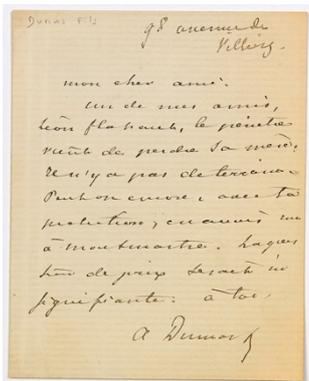 Dumas Fils
98 avenue de
Villiers.
mon cher ami.
un de mes amis,
Léon Flahaut, le peintre
vient de perdre sa mère.
Il n'y a pas de terrain.
Peut on encore, avec ta
protection, en avoir un
à montmartre. La ques
tion de prix serait in
signifiante. à toi,
A Dumas f